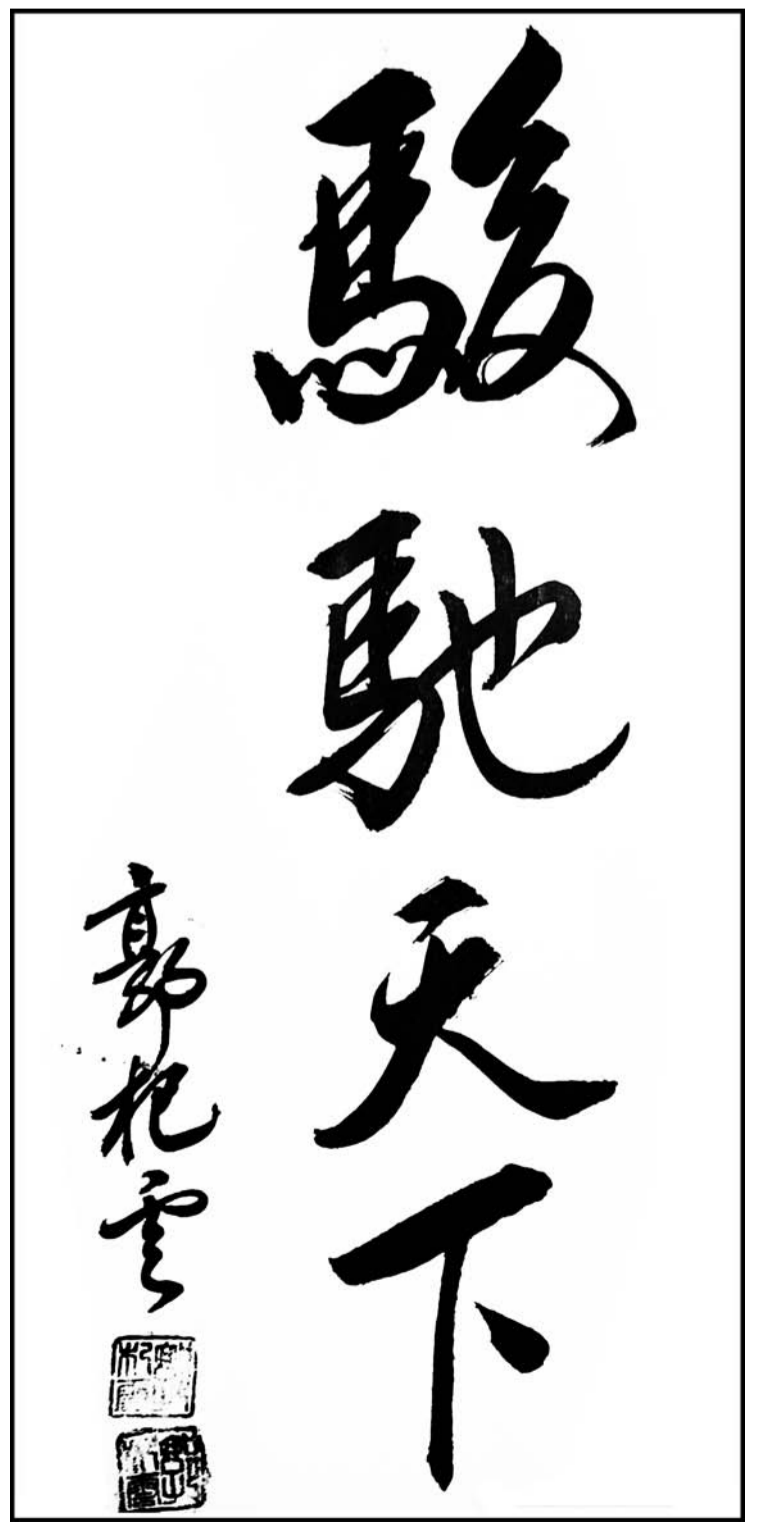 駿馳天下
郭杞雲